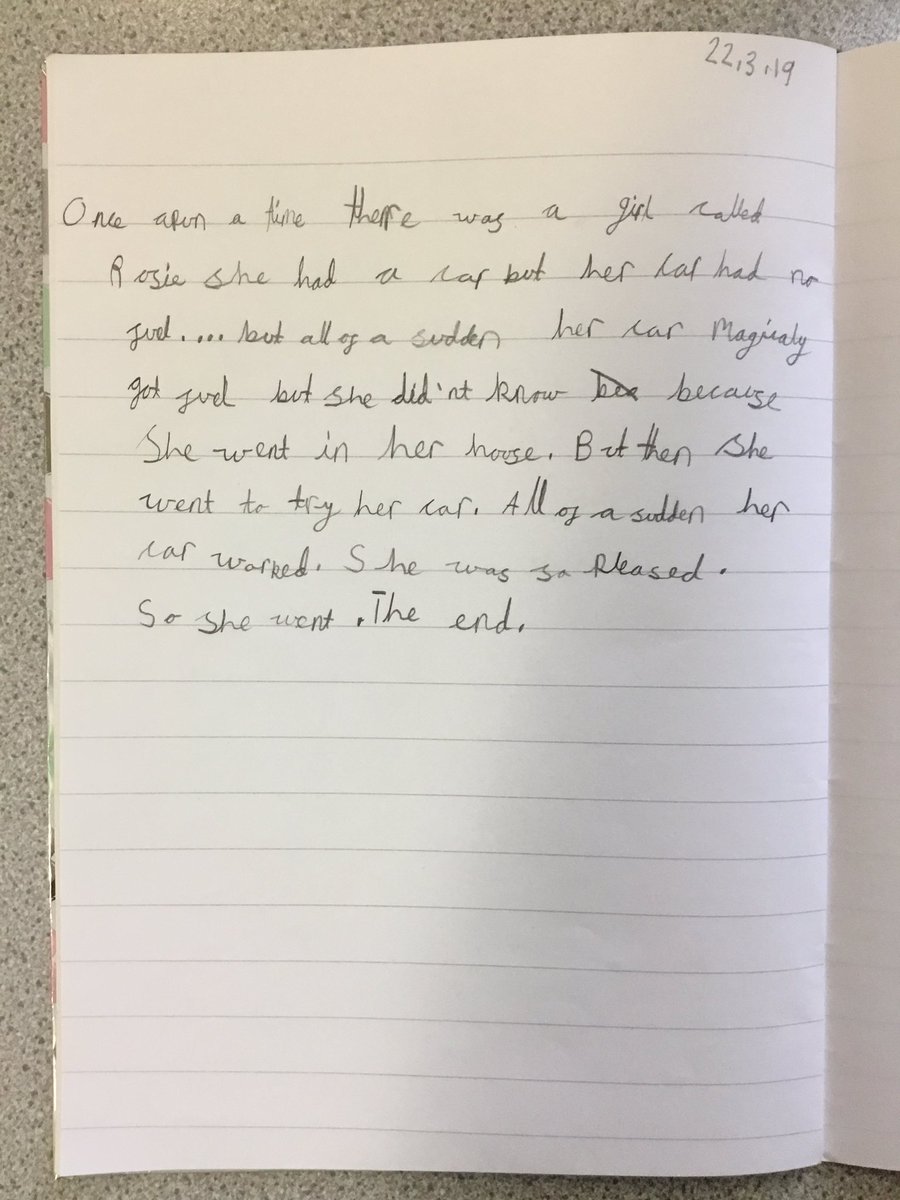 22.3.19
Once apun a time there was a girl called
Rosie she had a car but her car had no
fuel.... but all of a sudden her car Magicaly
got fuel but she did'nt know bec because
She went in her house. But then She
went to try her car. All of a sudden her
car worked. She was so Pleased.
So she went. The end.